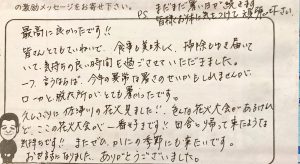 の激励メッセージをお寄せ下さい。
PS まだまだ暑い日が続きます
皆様お体に気をつけて頑張って下さい。
最高に良かったです!!
皆さんともていねいで、食事も美味しく、掃除もゆき届いて
いて、気持ちの良い時間を過ごさせていただきました。
一つ言うならば、今年の異常な暑さのせいかもしれませんが、
ローカと脱衣所がとても暑かったです。
久しぶりに佐津川の花火見ました!!色んな花火大会があるけれ
ど、ここの花火大会が一番好きです!!田舎に帰って来たような
気持ちです!!またぜひ、他の季節にも来たいです。
お世話になりました。ありがとうございました。